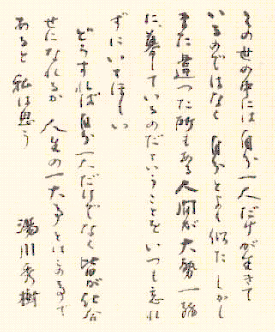 この世の中には自分一人だけが生きて
いるのではなく 自分とよく似た しかし
また違った所もある人間が大勢一緒
に、暮しているのだということをいつも忘れ
ずにいてほしい
どうすれば自分一人だけでなく 皆が仕合
せになれるか 人生の一大事とはこのことで
あると 私は思う
湯川秀樹